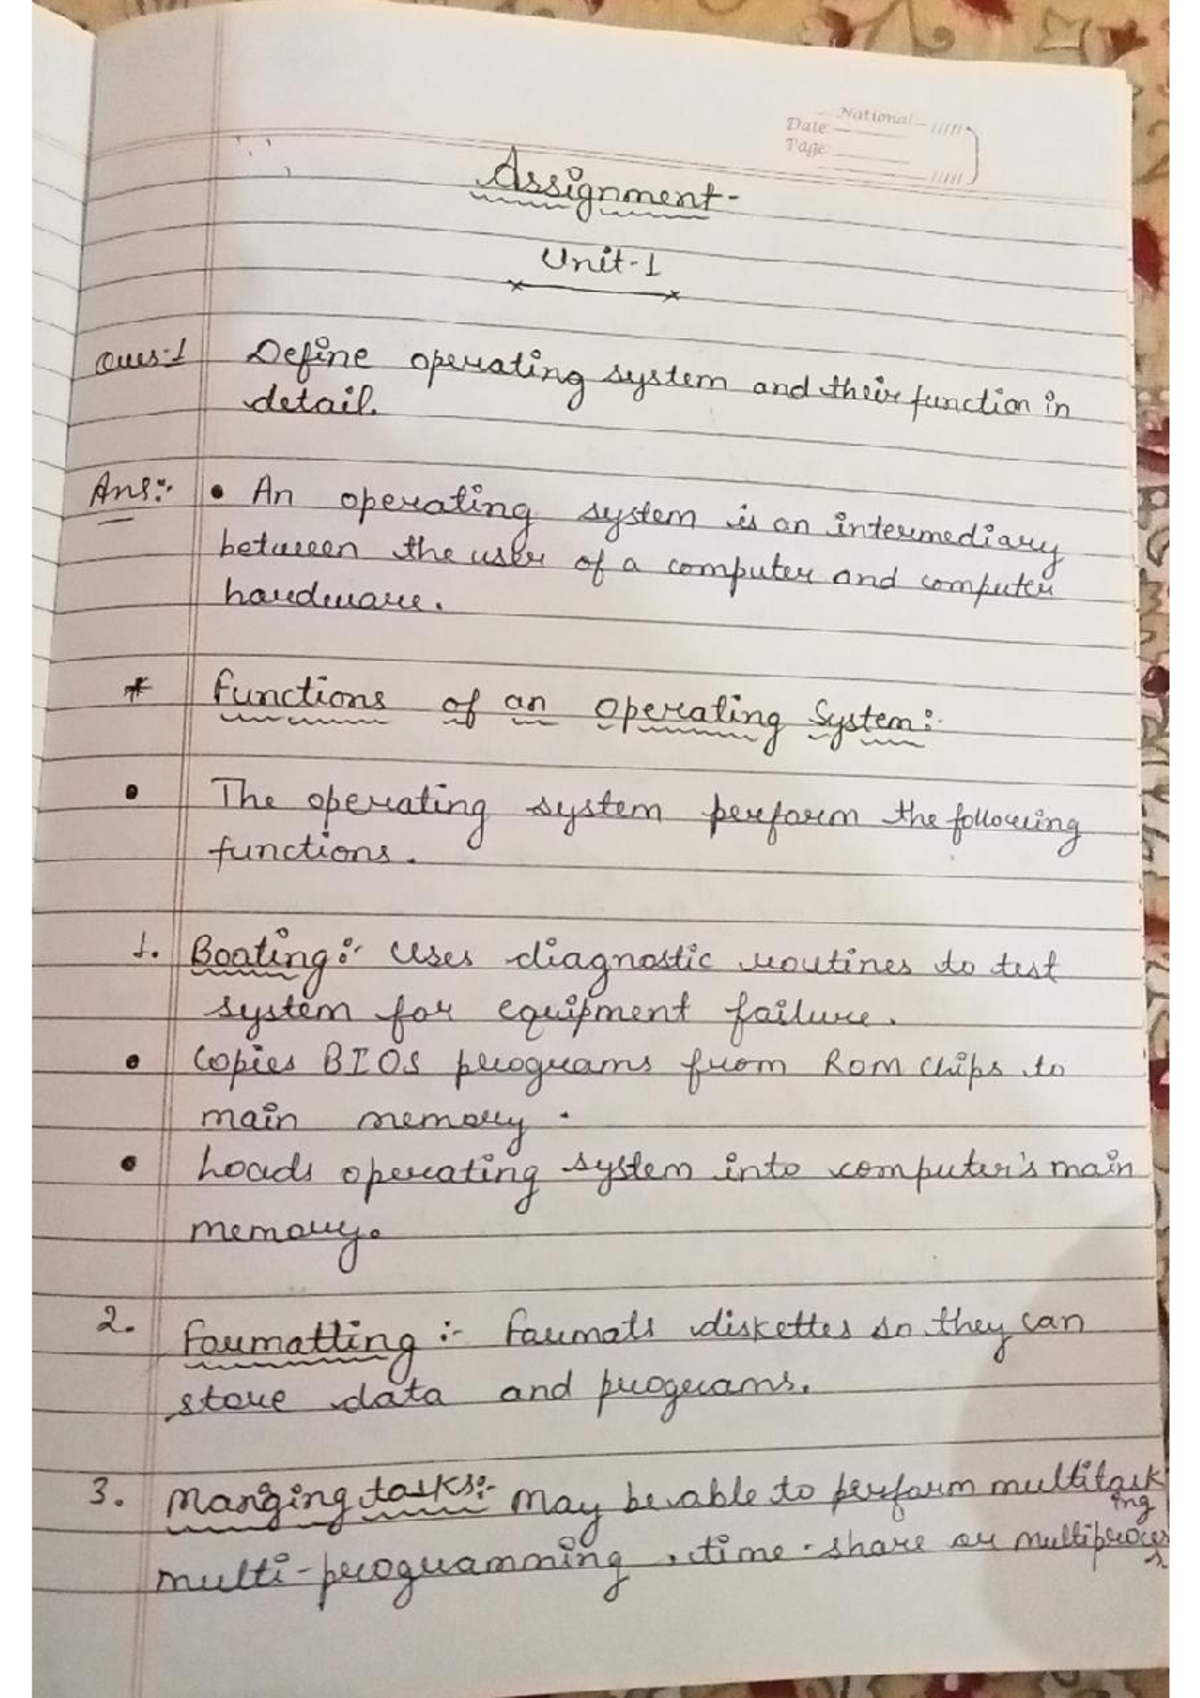 National
Date
Page
Assignment-
Unit-1
Ques-1 Define operating system and their function in
detail.
Ans:- • An operating system is an intermediary
between the user of a computer and computer
hardware.
* Functions of an Operating System:-
• The operating system perform the following
functions.
1. Booting:- Uses diagnostic routines to test
system for equipment failure.
• Copies BIOS programs from ROM chips to
main memory.
• Loads operating system into computer's main
memory.
2. Formatting :- Formats diskettes so they can
store data and programs.
3. Manging tasks:- May be able to perform multitask
ing
multi-programming, time-share or multiproces
s